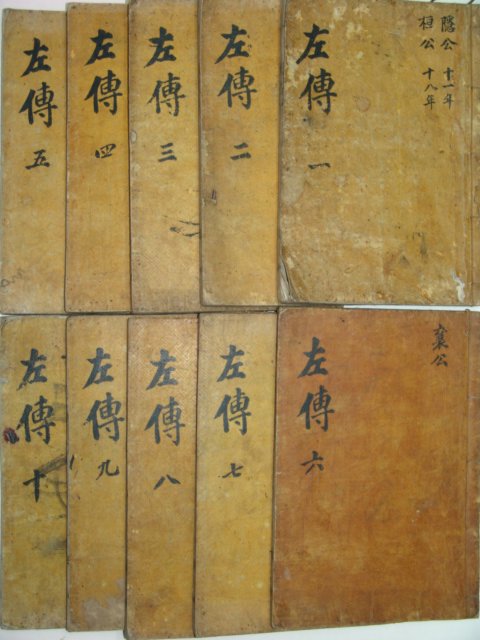 隱公 十一年
桓公 十八年
左傳 一
左傳 二
左傳 三
左傳 四
左傳 五
襄公
左傳 六
左傳 七
左傳 八
左傳 九
左傳 十